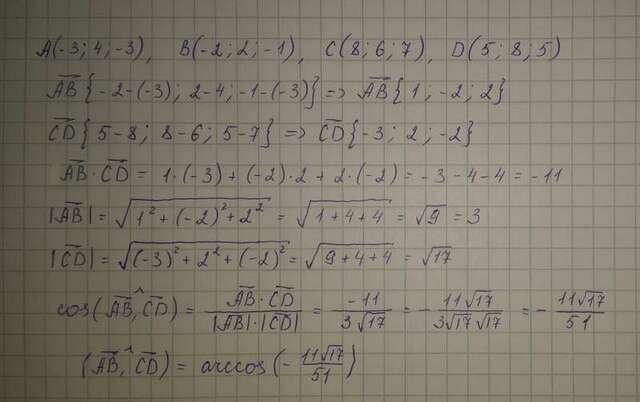 A(-3; 4; -3), B(-2; 2; -1), C(8; 6; 7), D(5; 8; 5)
A͞B{-2-(-3); 2-4; -1-(-3)} => A͞B{1; -2; 2}
C͞D{5-8; 8-6; 5-7} => C͞D{-3; 2; -2}
A͞B · C͞D = 1·(-3) + (-2)·2 + 2·(-2) = -3 - 4 - 4 = -11
|A͞B| = √(1² + (-2)² + 2²) = √(1+4+4) = √9 = 3
|C͞D| = √((-3)² + 2² + (-2)²) = √(9+4+4) = √17
cos(A͞B,^ C͞D) = (A͞B · C͞D)/(|A͞B|·|C͞D|) = -11/(3√17) = - 11√17/(3√17 √17) = - 11√17/51
(A͞B,^ C͞D) = arccos(- 11√17/51)